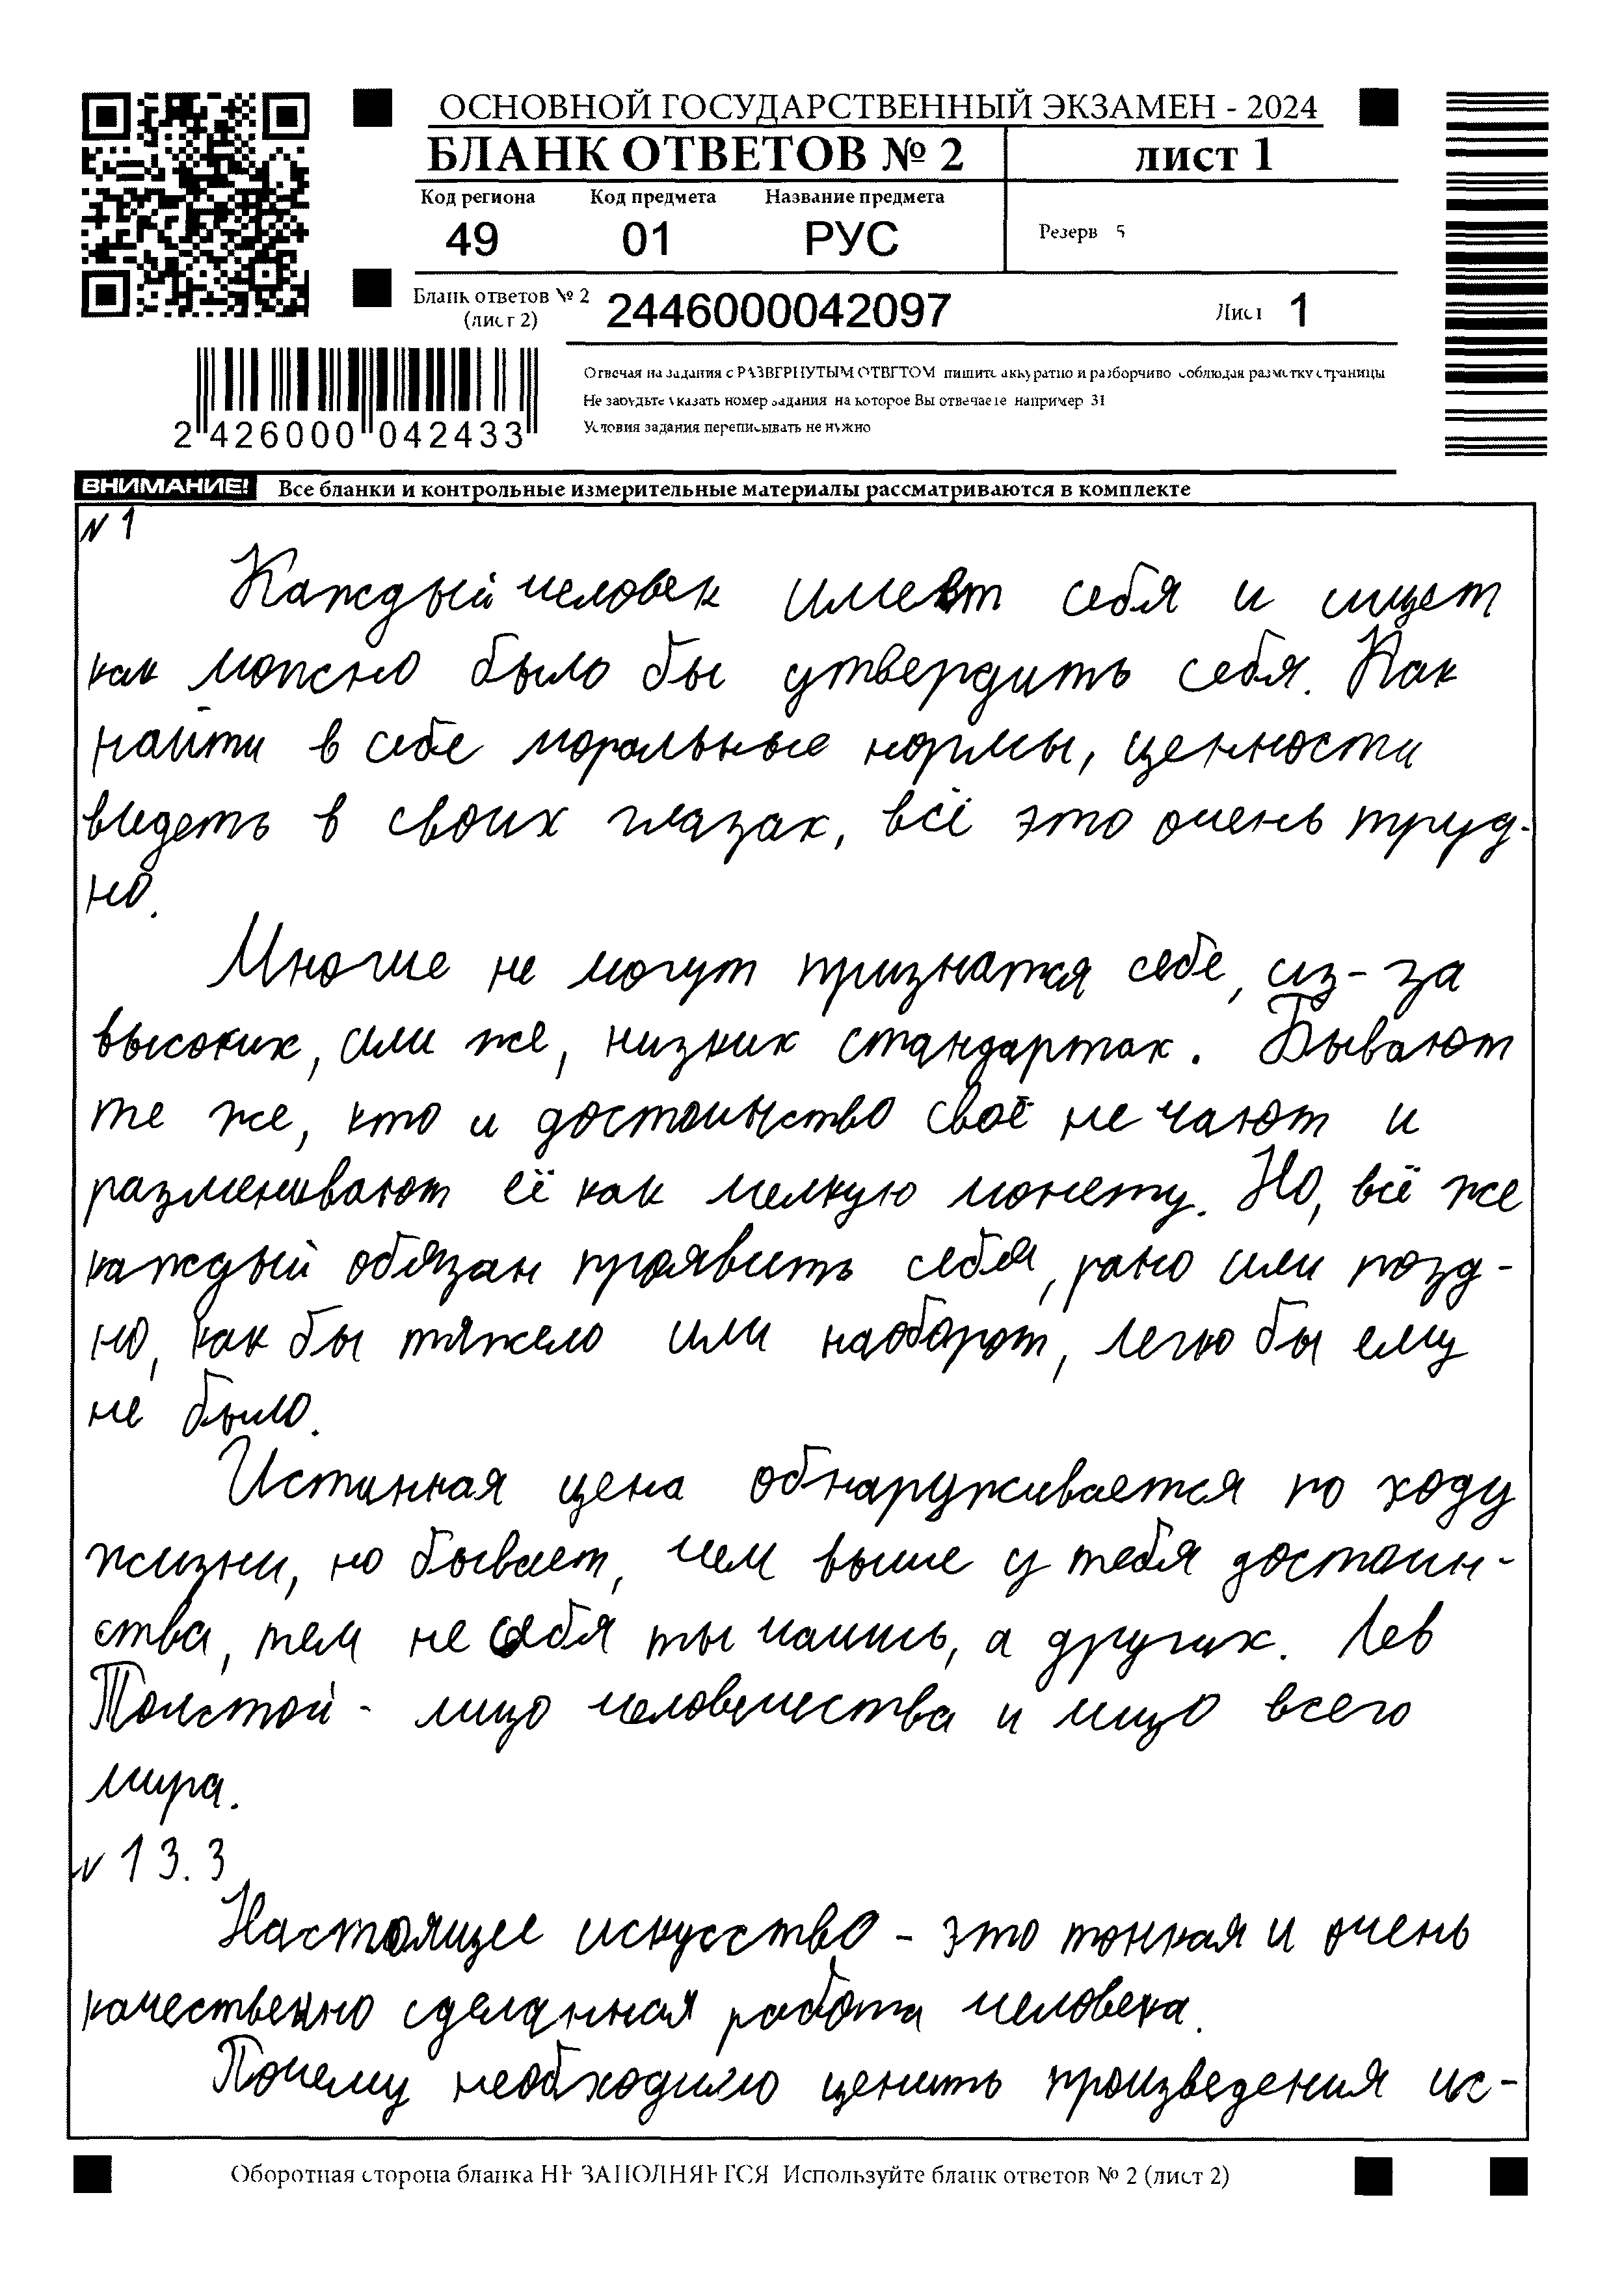 ОСНОВНОЙ ГОСУДАРСТВЕННЫЙ ЭКЗАМЕН - 2024
БЛАНК ОТВЕТОВ № 2
лист 1
Код региона
Код предмета
Название предмета
49
01
РУС
Резерв
5
Бланк ответов № 2
(лист 2)
2446000042097
Лист
1
Отвечая на задания с РАЗВЕРНУТЫМ ОТВЕТОМ пишите аккуратно и разборчиво соблюдая разметку страницы
Не забудьте указать номер задания на которое Вы отвечаете например 31
Условия задания переписывать не нужно
2 426000 042433
ВНИМАНИЕ!
Все бланки и контрольные измерительные материалы рассматриваются в комплекте
N 1
Каждый человек имеет себя и ищет
как можно было бы утвердить себя. Как
найти в себе моральные нормы, ценности
видеть в своих глазах, всё это очень труд-
но.
Многие не могут признатся себе, из-за
высоких, или же, низких стандартах. Бывают
те же, кто и достоинство своё не чают и
разменивают её как мелкую монету. Но, всё же
каждый обязан проявить себя, рано или позд-
но, как бы тяжело или наоборот, легко бы ему
не было.
Истинная цена обнаруживается по ходу
жизни, но бывает, чем выше у тебя достоин-
ства, тем не себя ты чаишь, а других. Лев
Толстой - лицо человечества и лицо всего
мира.
N 13.3
Настоящее искусство - это тонкая и очень
качественно сделанная работа человека.
Почему необходимо ценить произведения ис-
Оборотная сторона бланка НЕ ЗАПОЛНЯЕТСЯ Используйте бланк ответов № 2 (лист 2)